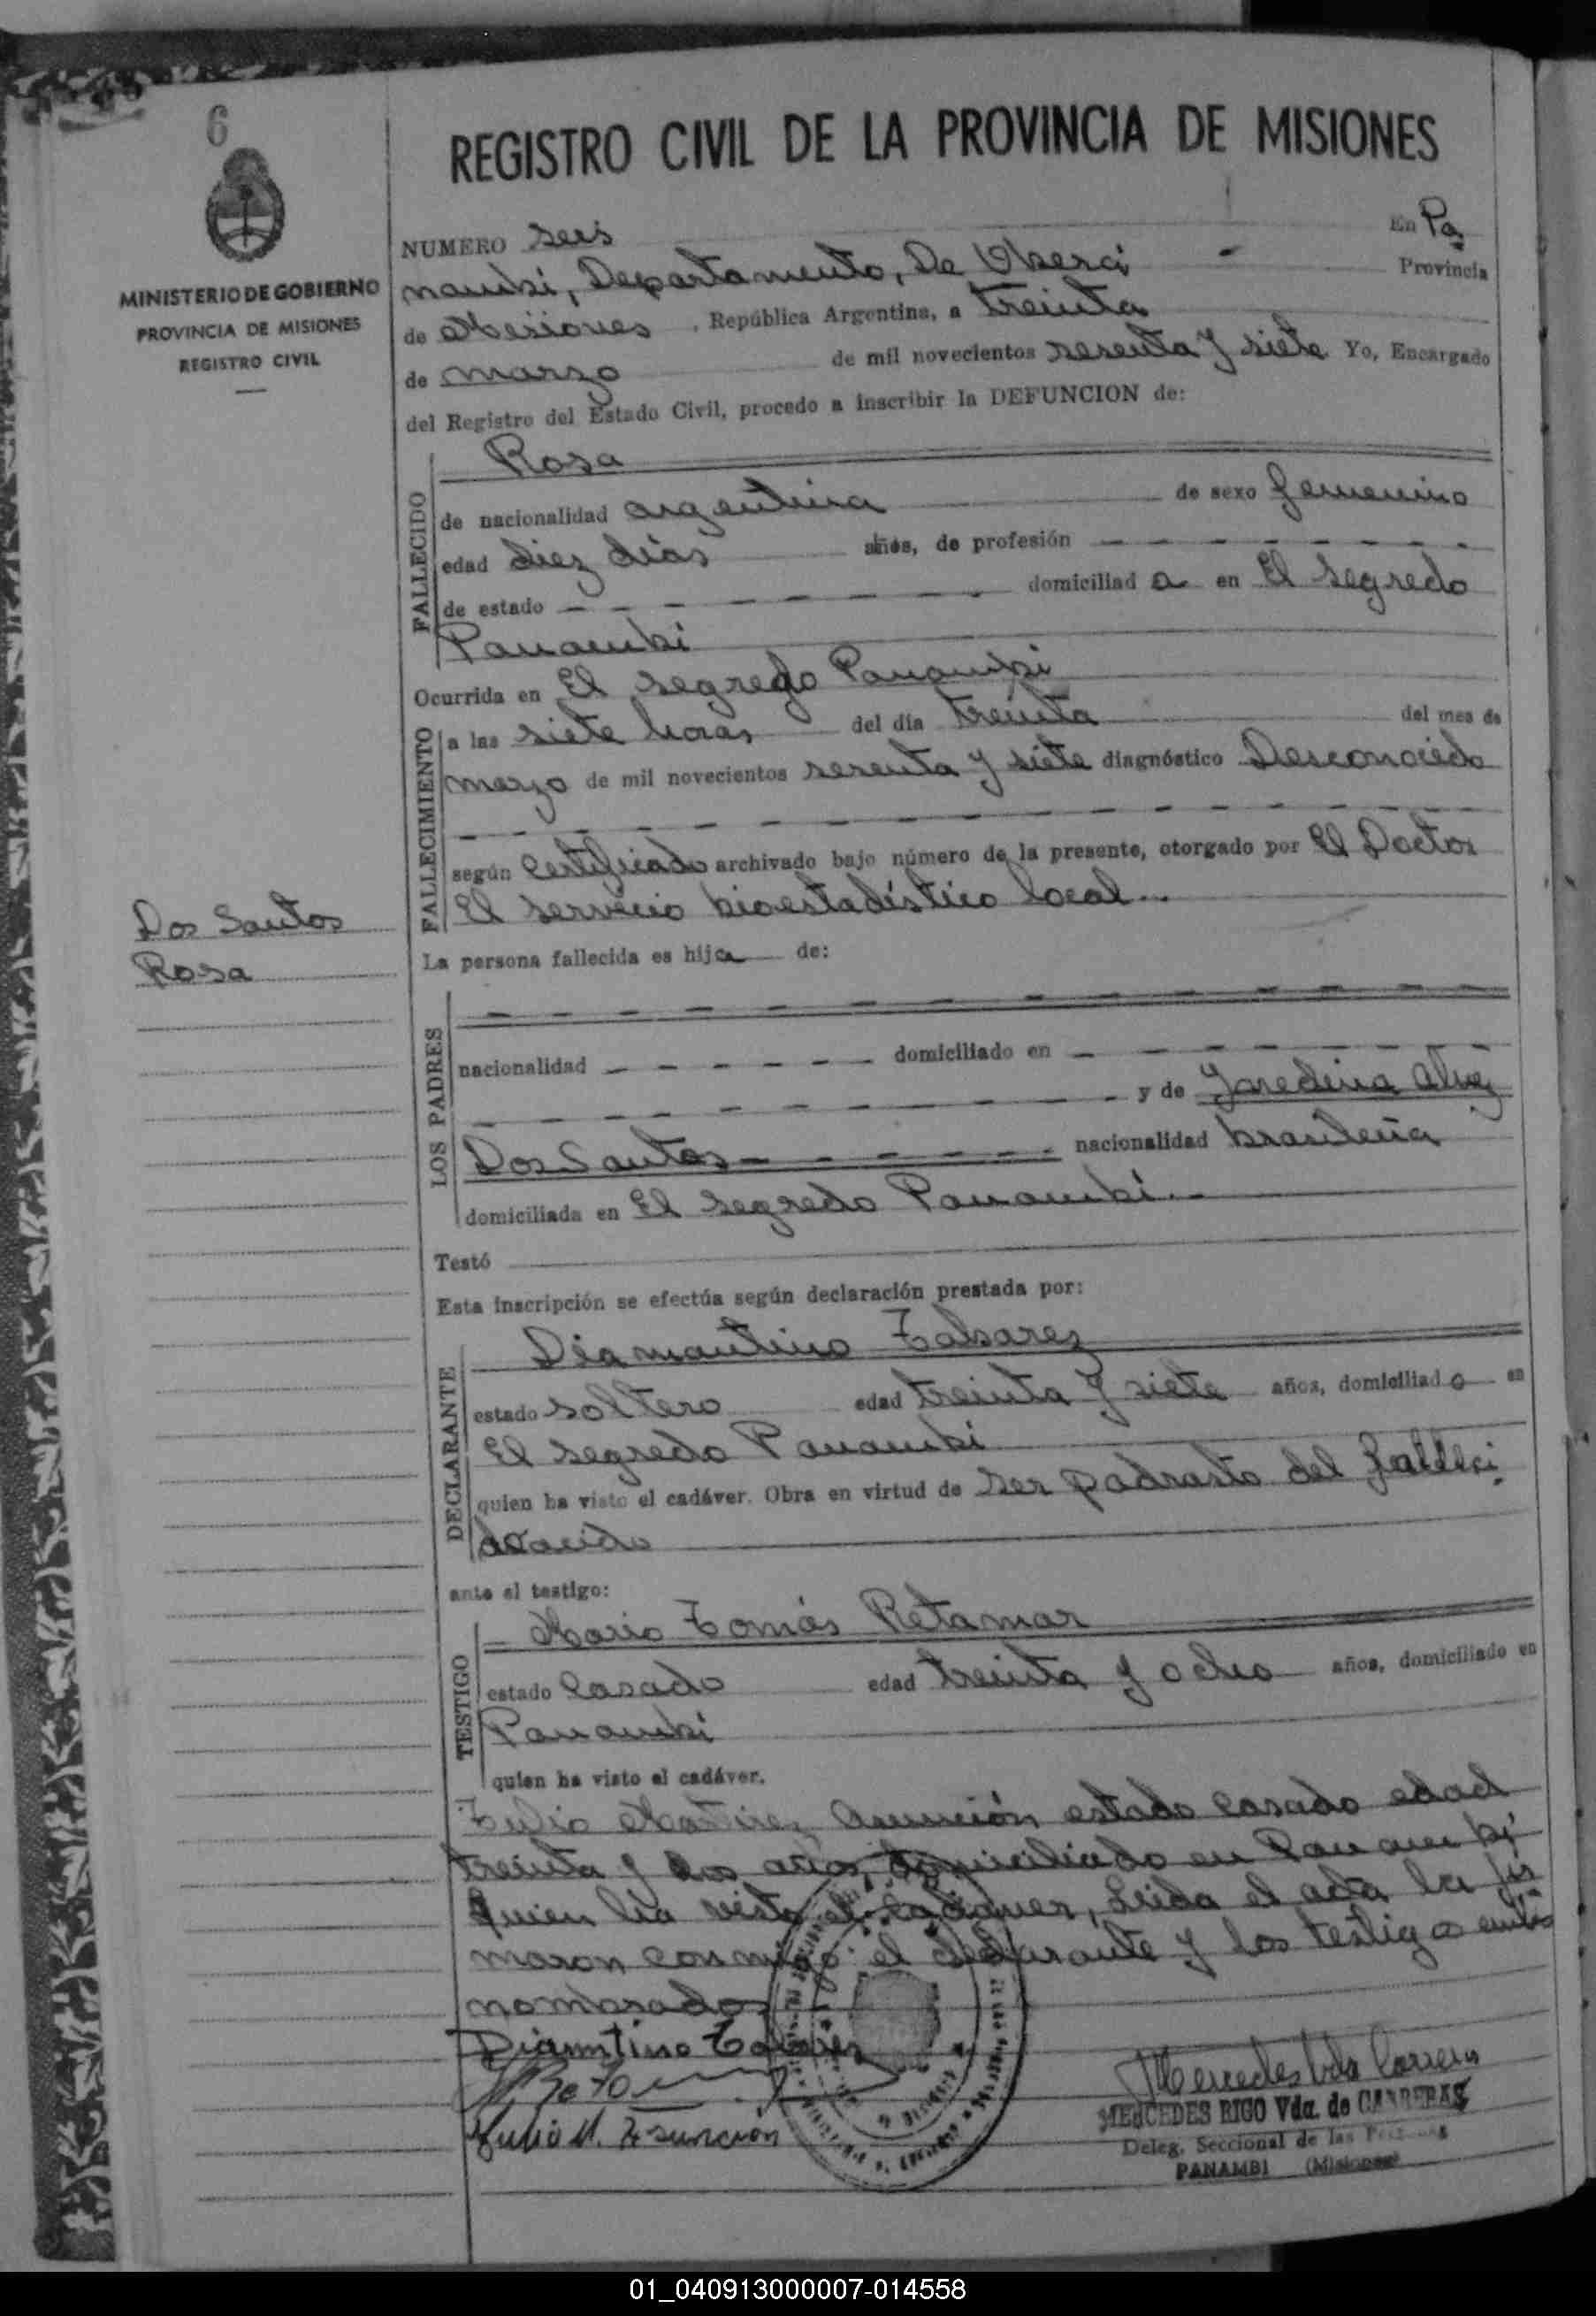 6
REGISTRO CIVIL DE LA PROVINCIA DE MISIONES
MINISTERIO DE GOBIERNO
PROVINCIA DE MISIONES
REGISTRO CIVIL
NUMERO seis En Pa
nambi, Departamento, De Oberá - Provincia
de Misiones, República Argentina, a treinta
de marzo de mil novecientos sesenta y siete Yo, Encargado
del Registro del Estado Civil, procedo a inscribir la DEFUNCION de:
FALLECIDO
Rosa
de nacionalidad argentina de sexo femenino
edad diez días años, de profesión - - - - - - -
de estado - - - - - - - - domiciliad a en El Segredo
Panambi
Ocurrida en El Segredo Panambi
FALLECIMIENTO
a las siete horas del día treinta del mes de
marzo de mil novecientos sesenta y siete diagnóstico Desconocido
según Certificado archivado bajo número de la presente, otorgado por El Doctor
El servicio bioestadístico local...
Dos Santos
Rosa
La persona fallecida es hija de:
LOS PADRES
nacionalidad - - - - - - domiciliado en - - - - - -
y de Jaredina Alvez
Dos Santos - - - - - - nacionalidad brasileña
domiciliada en El Segredo Panambi.-
Testó
Esta inscripción se efectúa según declaración prestada por:
DECLARANTE
Diamantino Tabarez
estado soltero edad treinta y siete años, domiciliad o en
El Segredo Panambi
quien ha visto el cadáver. Obra en virtud de ser padrasto del
ante el testigo:
TESTIGO
Mario Tomás Retamar
estado Casado edad treinta y ocho años, domiciliado en
Panambi
quien ha visto el cadáver.
Julio Asunción estado casado edad
treinta y dos años, domiciliado en Panambi
quien ha visto el cadaver, Leida el acta la fir
maron conmigo el declarante y los testigos
nombrados
Diamtino
Julio M. Asunción
MERCEDES RIGO Vda. de CARRERAS
Deleg. Seccional de las
PANAMBI (Misiones)
01_040913000007-014558